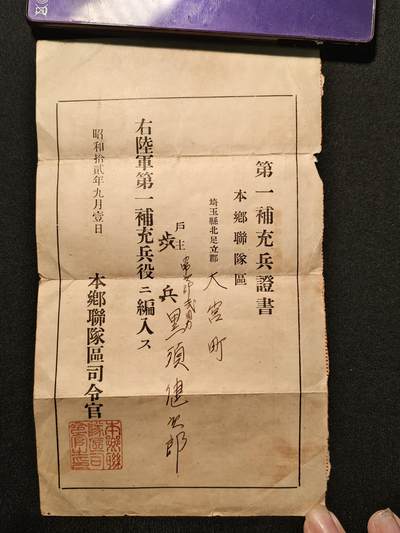 第一補充兵證書
本鄉聯隊區
埼玉縣北足立郡 大宮町
戶主
步兵 黒須健次郎
右陸軍第一補充兵役ニ編入ス
昭和拾貳年九月壹日
本鄉聯隊區司令官